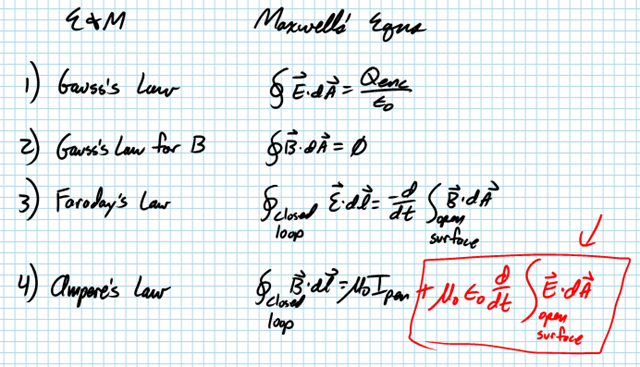 E & M Maxwell's Eqns
1) Gauss's Law ∮ E⃗·dA⃗ = Qenc/ε₀
2) Gauss's Law for B ∮ B⃗·dA⃗ = ∅
3) Faraday's Law ∮closed loop E⃗·dl⃗ = -d/dt ∫open surface B⃗·dA⃗
4) Ampere's Law ∮closed loop B⃗·dl⃗ = μ₀Ipen + μ₀ε₀ d/dt ∫open surface E⃗·dA⃗